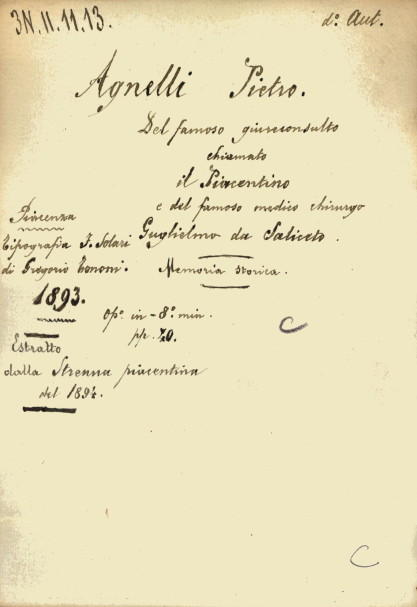 3N.II.11.13.
d°. Aut.
Agnelli Pietro.
Del famoso giureconsulto
chiamato
il Piacentino
e del famoso medico chirurgo
Guglielmo da Saliceto.
Memoria storica.
Piacenza
Tipografia F. Solari
di Gregorio Tononi.
1893.
Op°. in - 8°. min.
pp. 40.
Estratto
dalla Strenna piacentina
del 1894.
C
C